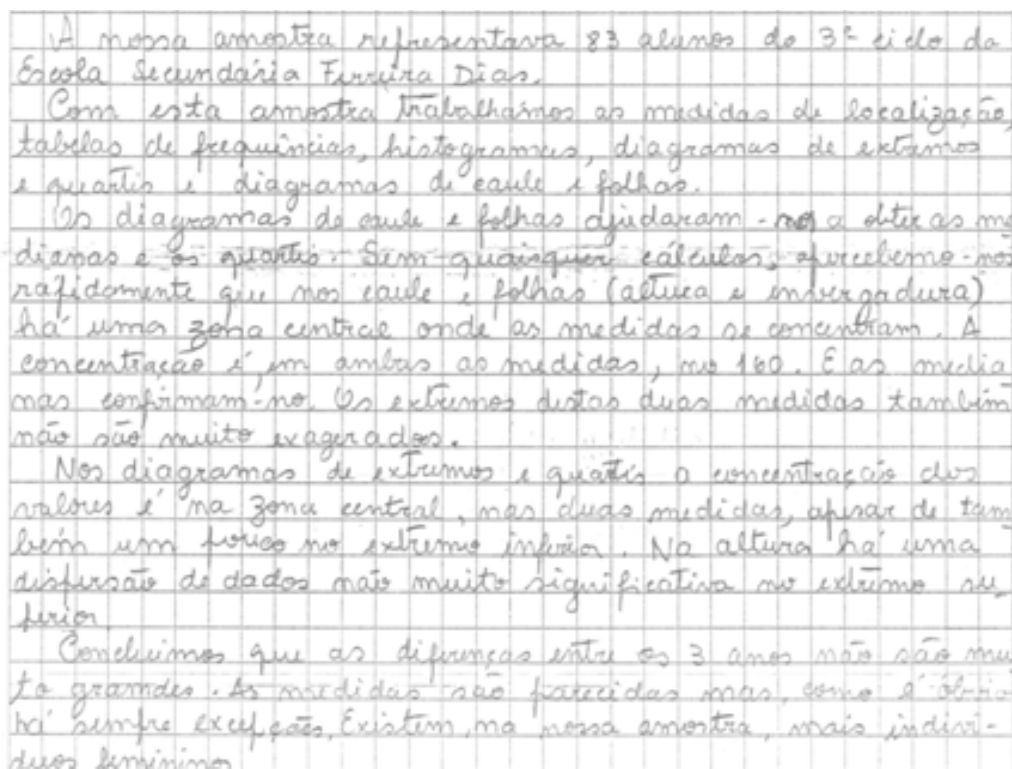 A nossa amostra representava 83 alunos do 3º ciclo da
Escola Secundária Ferreira Dias.
Com esta amostra trabalhámos as medidas de localização,
tabelas de frequências, histogramas, diagramas de extremos
e quartis e diagramas de caule e folhas.
Os diagramas de caule e folhas ajudaram-nos a obter as me
dianas e os quartis. Sem quaisquer cálculos, apercebemo-nos
rapidamente que nos caule e folhas (altura e envergadura)
há uma zona central onde as medidas se concentram. A
concentração é, em ambas as medidas, no 160. E as media
nas confirmam-no. Os extremos destas duas medidas também
não são muito exagerados.
Nos diagramas de extremos e quartis a concentração dos
valores é na zona central, nas duas medidas, apesar de tam
bém um pouco no extremo inferior. Na altura há uma
dispersão de dados não muito significativa no extremo su_
perior.
Concluimos que as diferenças entre os 3 anos não são mui
to grandes. As medidas são parecidas mas, como é óbvio
há sempre excepções. Existem, na nossa amostra, mais indiví-
duos femininos